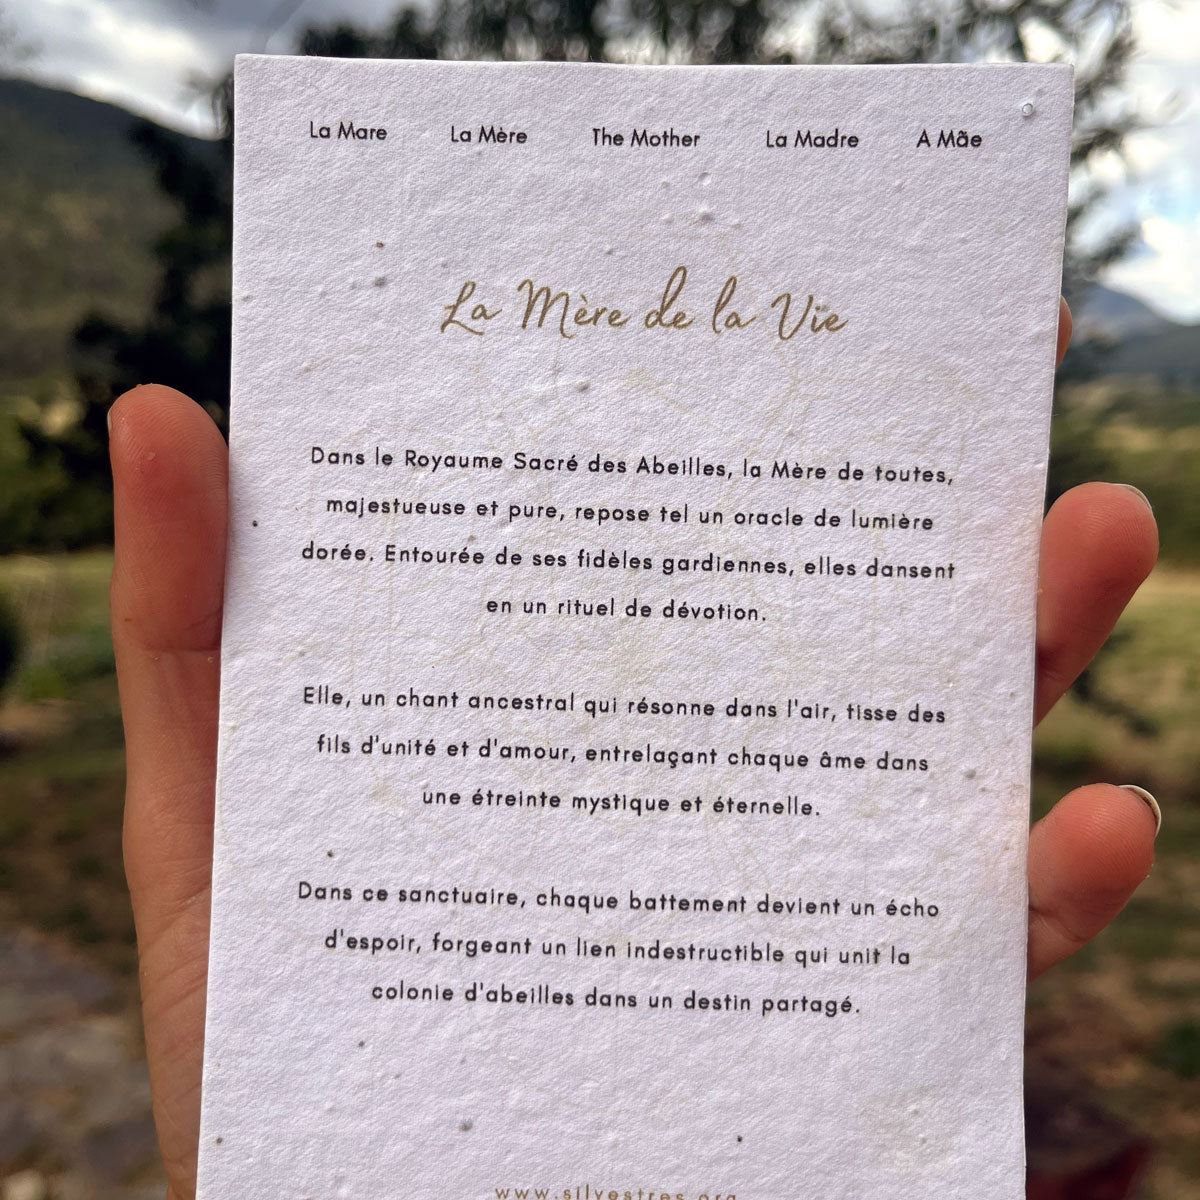 La Mare La Mère The Mother La Madre A Mãe
La Mère de la Vie
Dans le Royaume Sacré des Abeilles, la Mère de toutes,
majestueuse et pure, repose tel un oracle de lumière
dorée. Entourée de ses fidèles gardiennes, elles dansent
en un rituel de dévotion.
Elle, un chant ancestral qui résonne dans l'air, tisse des
fils d'unité et d'amour, entrelaçant chaque âme dans
une étreinte mystique et éternelle.
Dans ce sanctuaire, chaque battement devient un écho
d'espoir, forgeant un lien indestructible qui unit la
colonie d'abeilles dans un destin partagé.
www.silvestres.org